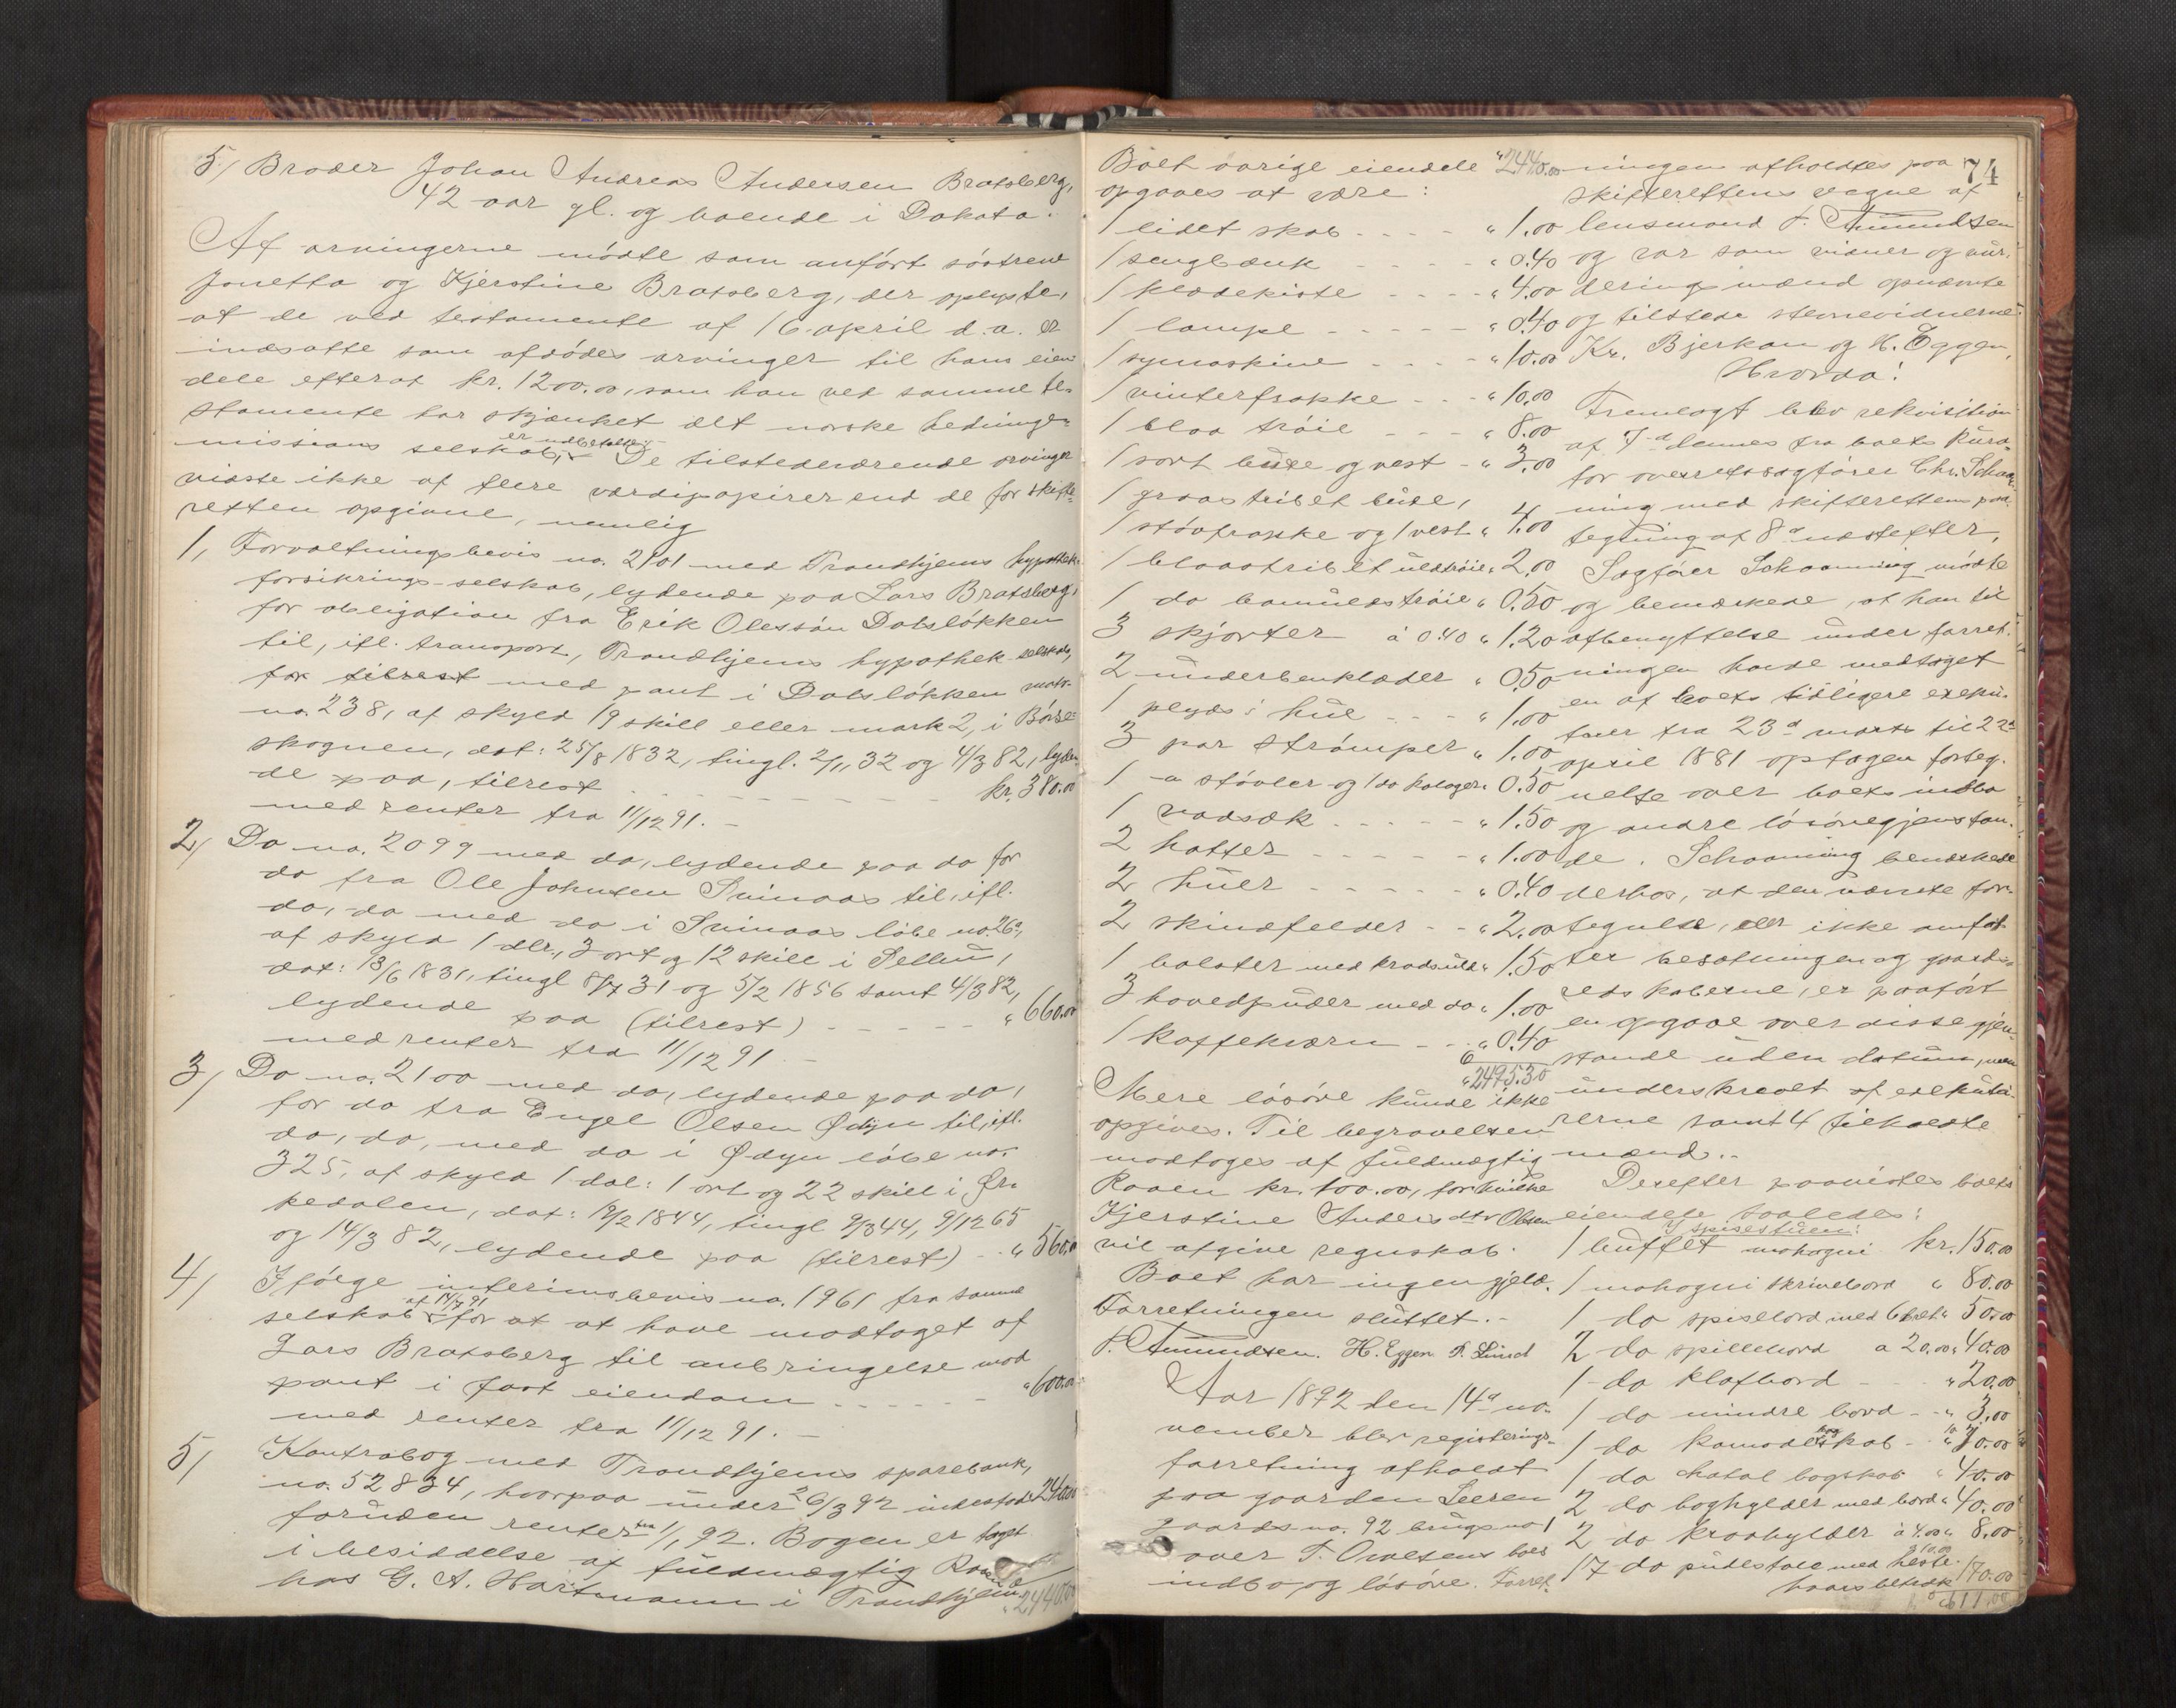 5/ Broder Johan Andreas Andersen Bratsberg,
42 aar gl. og boende i Dakota.
Af arvingerne mødte som anført søstrene
Jonetta og Kjerstine Bratsberg, der oplyste,
at de ved testamente af 16 april d.a. er
indsatte som afdødes arvinger til hans eien-
dele efterat kr. 1200.00, som han ved samme te-
stamente har skjænket det norske hedninge-
missions selskab, er udbetalte. De tilstedeværende arvinger
vidste ikke af flere værdipapirer end de for skifte-
retten opgivne, nemlig
1, Forvaltningsbevis no. 2101 med Trondhjems hypothek-
forsikrings-selskab, lydende paa Lars Bratsberg,
for obligation fra Erik Olessøn Dalsløkken
til, ifl. transport, Trondhjems hypothek-selskab,
for tilrest med pant i Dalsløkken matr.
no. 238, af skyld 19 skill eller mark 2, i Børse-
skognen, dat: 25/8 1832, tingl. 2/11 32 og 4/3 82, lyden-
de paa, tilrest - - - - kr. 380.00
med renter fra 11/12 91. -
2/ Do no. 2099 med do, lydende paa do for
do fra Ole Johnsen Svinaas til, ifl.
do, do med do i Svinaas løbe no 26a,
af skyld 1 dlr., 3 ort og 12 skill i Selbu,
dat: 13/6 1831, tingl 8/7 31 og 5/2 1856 samt 4/3 82,
lydende paa (tilrest) - - - - " 660.00
med renter fra 11/12 91. -
3/ Do no. 2100 med do, lydende paa do,
for do fra Engel Olsen Ødyn til, ifl.
do, do, med do i Ødyn løbe no.
325, af skyld 1 dal: 1 ort og 22 skill i Ør-
kedalen, dat: 12/2 1844, tingl 9/3 44, 9/12 65
og 14/3 82, lydende paa (tilrest) - - " 560.00
4/ Ifølge interimsbevis no. 1961 fra samme
selskab af 14/7 91 for at at have modtaget af
Lars Bratsberg til anbringelse mod
pant i fast eiendom - - - - " 600.00
med renter fra 11/12 91. -
5/ Kontrabog med Trondhjems sparebank,
no. 52834, hvorpaa under 26/3 92 indestod " 240.00
foruden renter fra 1/1 92. Bogen er taget
i besiddelse af fuldmægtig Raaen
hos G. A. Hartmann i Trondhjem. " 2440.00
74
Boet øvrige eiendele " 2440.00
opgaves at være:
1 lidet skab - - - - " 1.00
1 sengbænk - - - - " 0.40
1 klædekiste - - - - " 4.00
1 lampe - - - - " 0.40
1 symaskine - - - - " 10.00
1 vinterfrakke - - - " 10.00
1 blaa trøie - - - " 8.00
1 sort buxe og vest - " 3.00
1 graastribet buxe,
1 støvfrakke og 1 vest " 4.00
1 blaastribet uldtrøie " 2.00
1 do bomuldstrøie " 0.50
3 skjorter à 0.40 " 1.20
2 underbenklæder " 0.50
1 plyds hue - - - " 1.00
3 par strømper " 1.00
1 " støvler og 1 do kaloger " 0.50
1 vadsæk - - - - " 1.50
2 hatter - - - - " 1.00
2 huer - - - - " 0.40
2 skindfelder - - " 2.00
1 bolster med kradsuld " 1.50
3 hovedpuder med do " 1.00
1 kaffekværn - - " 0.40
" 2495.30
Mere løsøre kunde ikke
opgives. Til begravelsen
modtoges af fuldmægtig
Raaen kr. 100.00, for hvilke
Kjerstine Andersdtr Olsen
vil afgive regnskab.
Boet har ingen gjeld.
Forretningen sluttet. -
P. Amundsen. H. Eggen P. Lund
Aar 1892 den 14d no-
vember blev registerings-
forretning afholdt
paa gaarden Leeren
gaards no. 92 brugs no 1
over T. Owesens boes
indbo og løsøre. Forret-
ningen afholdtes paa
skifterettens vegne af
lensmand P. Amundsen
og var som vidner og vur-
deringsmænd opnævnte
og tilstede stevnevidnerne
Kr. Bjerkan og H. Eggen.
Hvorda!
Fremlagt blev rekvisition
af 7d dennes fra boets kura-
tor overretssagfører Chr. Schaan-
ning med skifterettens paa-
tegning af 8d næstefter.
Sagfører Schaanning mødte
og bemærkede, at han til
afbenyttelse under forret-
ningen havde medtaget
en af boets tidligere exeku-
torer fra 23d marts til 22d
april 1881 optagen forteg-
nelse over boets indbo
og andre løsøregjenstan-
de. Schaanning bemærkede
derhos, at den nævnte for-
tegnelse, der ikke omfat-
ter besætningen og gaards-
redskaberne, er paaført
en opgave over disse gjen-
stande uden datum, men
underskrevet af exekuto-
rerne samt 4 tilkaldte
mænd. -
Derefter paavistes boets
eiendele saaledes:
I spisestuen:
1 buffet mahogni kr. 150.00
1 mahogni skrivebord " 80.00
1 do spisebord med 6 bræt " 50.00
2 do spillebord a 20.00 " 40.00
1 do klafbord - - - " 20.00
1 do mindre bord - - " 3.00
1 do komodeskab - " 10.00
1 do chatol bogskab " 40.00
2 do boghylder med bord " 40.00
2 do kroghylder à 4.00 " 8.00
17 do pudestole med heste-
haars betræk à 10.00 170.00
611.00